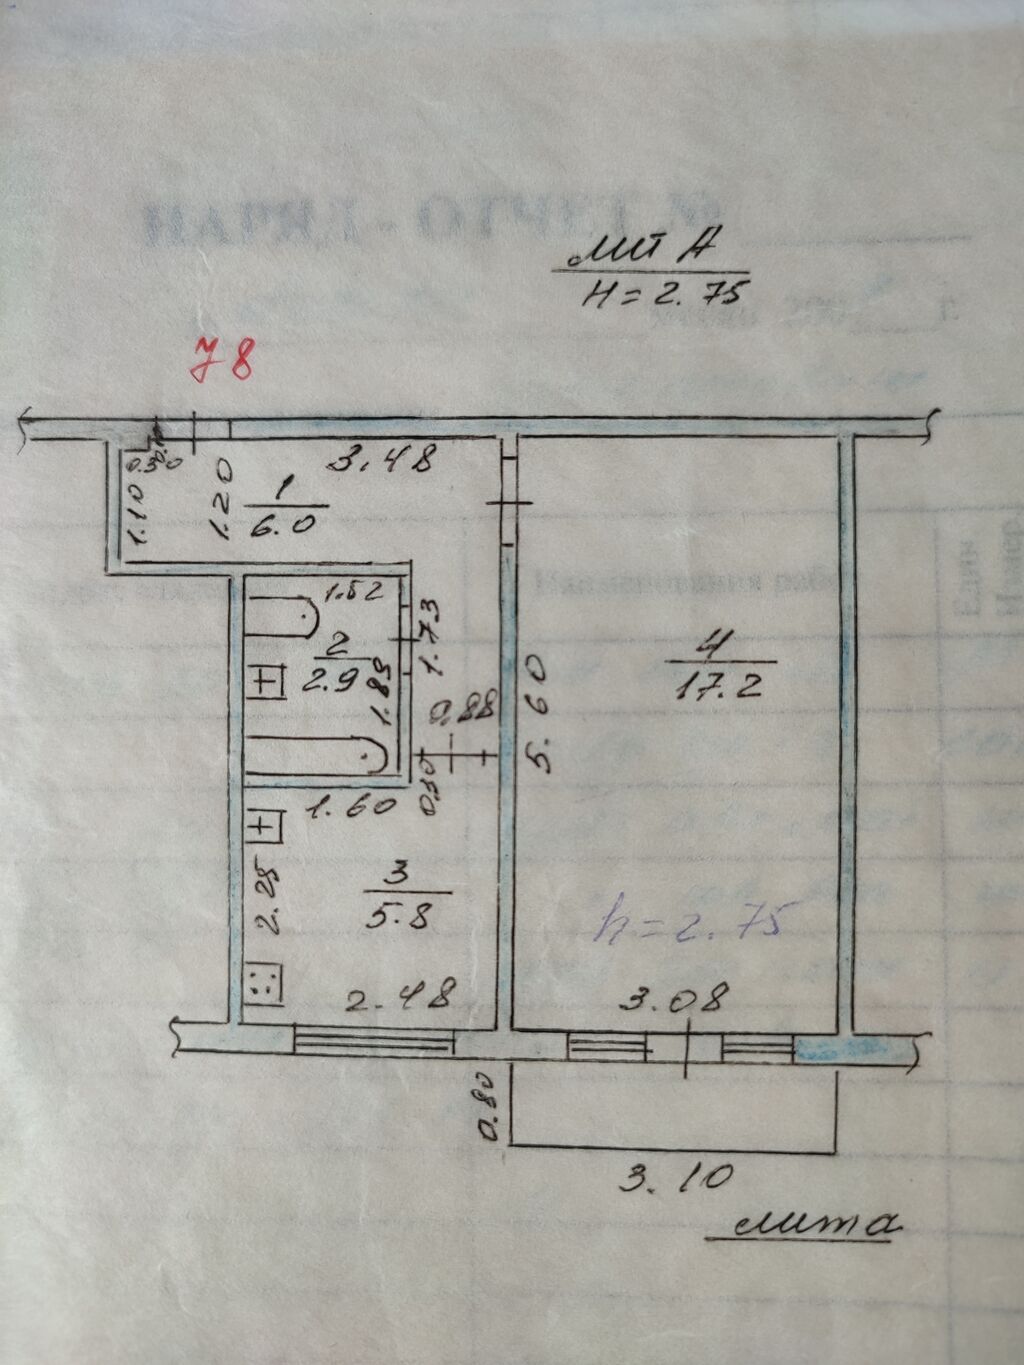 НАРЯД - ОТЧЕТ №
лит А
H = 2.75
78
3.48
0.30
1.10
1.20
1
6.0
Наименования работ
1.52
1.73
2
2.9
1.89
4
17.2
0.88
5.60
0.30
1.60
3
5.8
2.25
h = 2.75
2.48
3.08
0.80
3.10
лит а